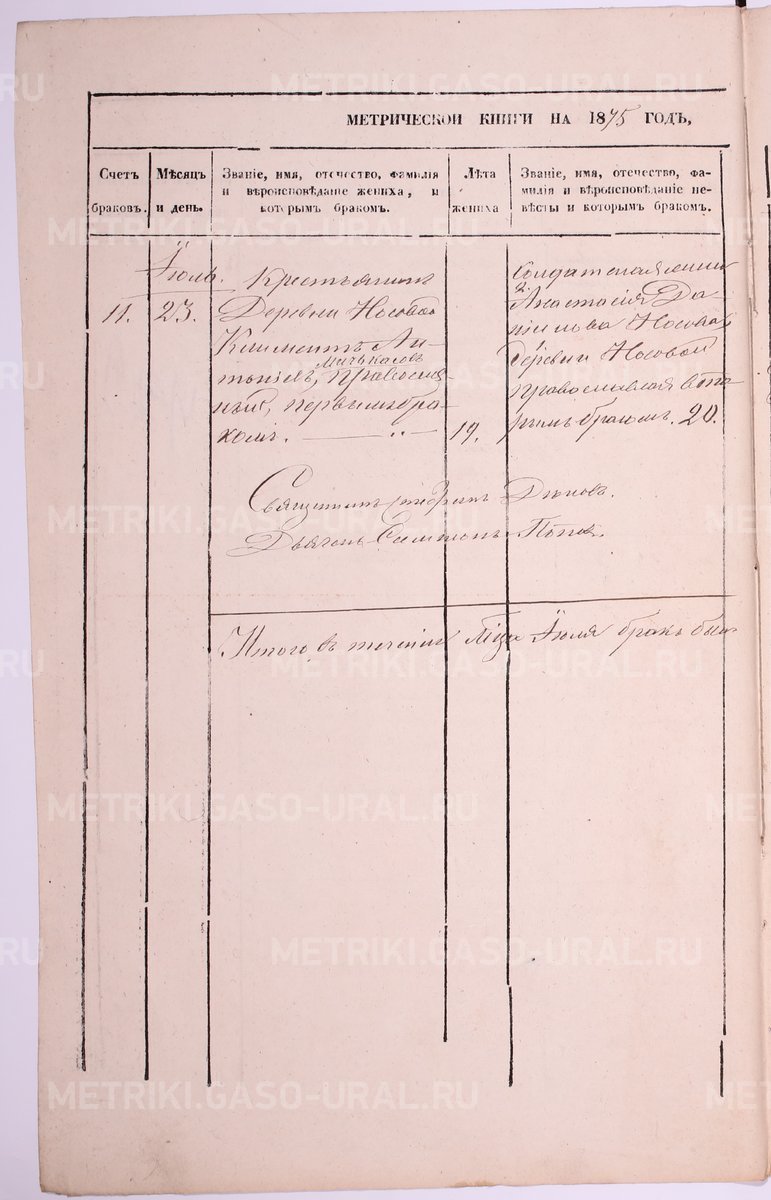 МЕТРИЧЕСКОЙ КНИГИ НА 1875 ГОДЪ,
Счетъ браковъ.
Мѣсяцъ и день.
Званіе, имя, отечество, фамилія
и вѣроисповѣданіе жениха, и
которымъ бракомъ.
Лѣта жениха
Званіе, имя, отечество, фа-
милія и вѣроисповѣданіе не-
вѣсты и которымъ бракомъ.
Іюль.
11.
23.
Крестьянинъ
Деревни Носовой
Климентъ Ан-
Мичькасовъ
тоніевъ, православ-
ный, первымъ бра-
комъ.
19.
Анастасія Да-
нилова Носова
деревни Носовой
православная вто-
рымъ бракомъ. 20.
Священникъ Дягновъ.
Дьячекъ Поповъ.
Итого въ теченіи м-ца Іюля бракъ былъ
METRIKI.GASO-URAL.RU